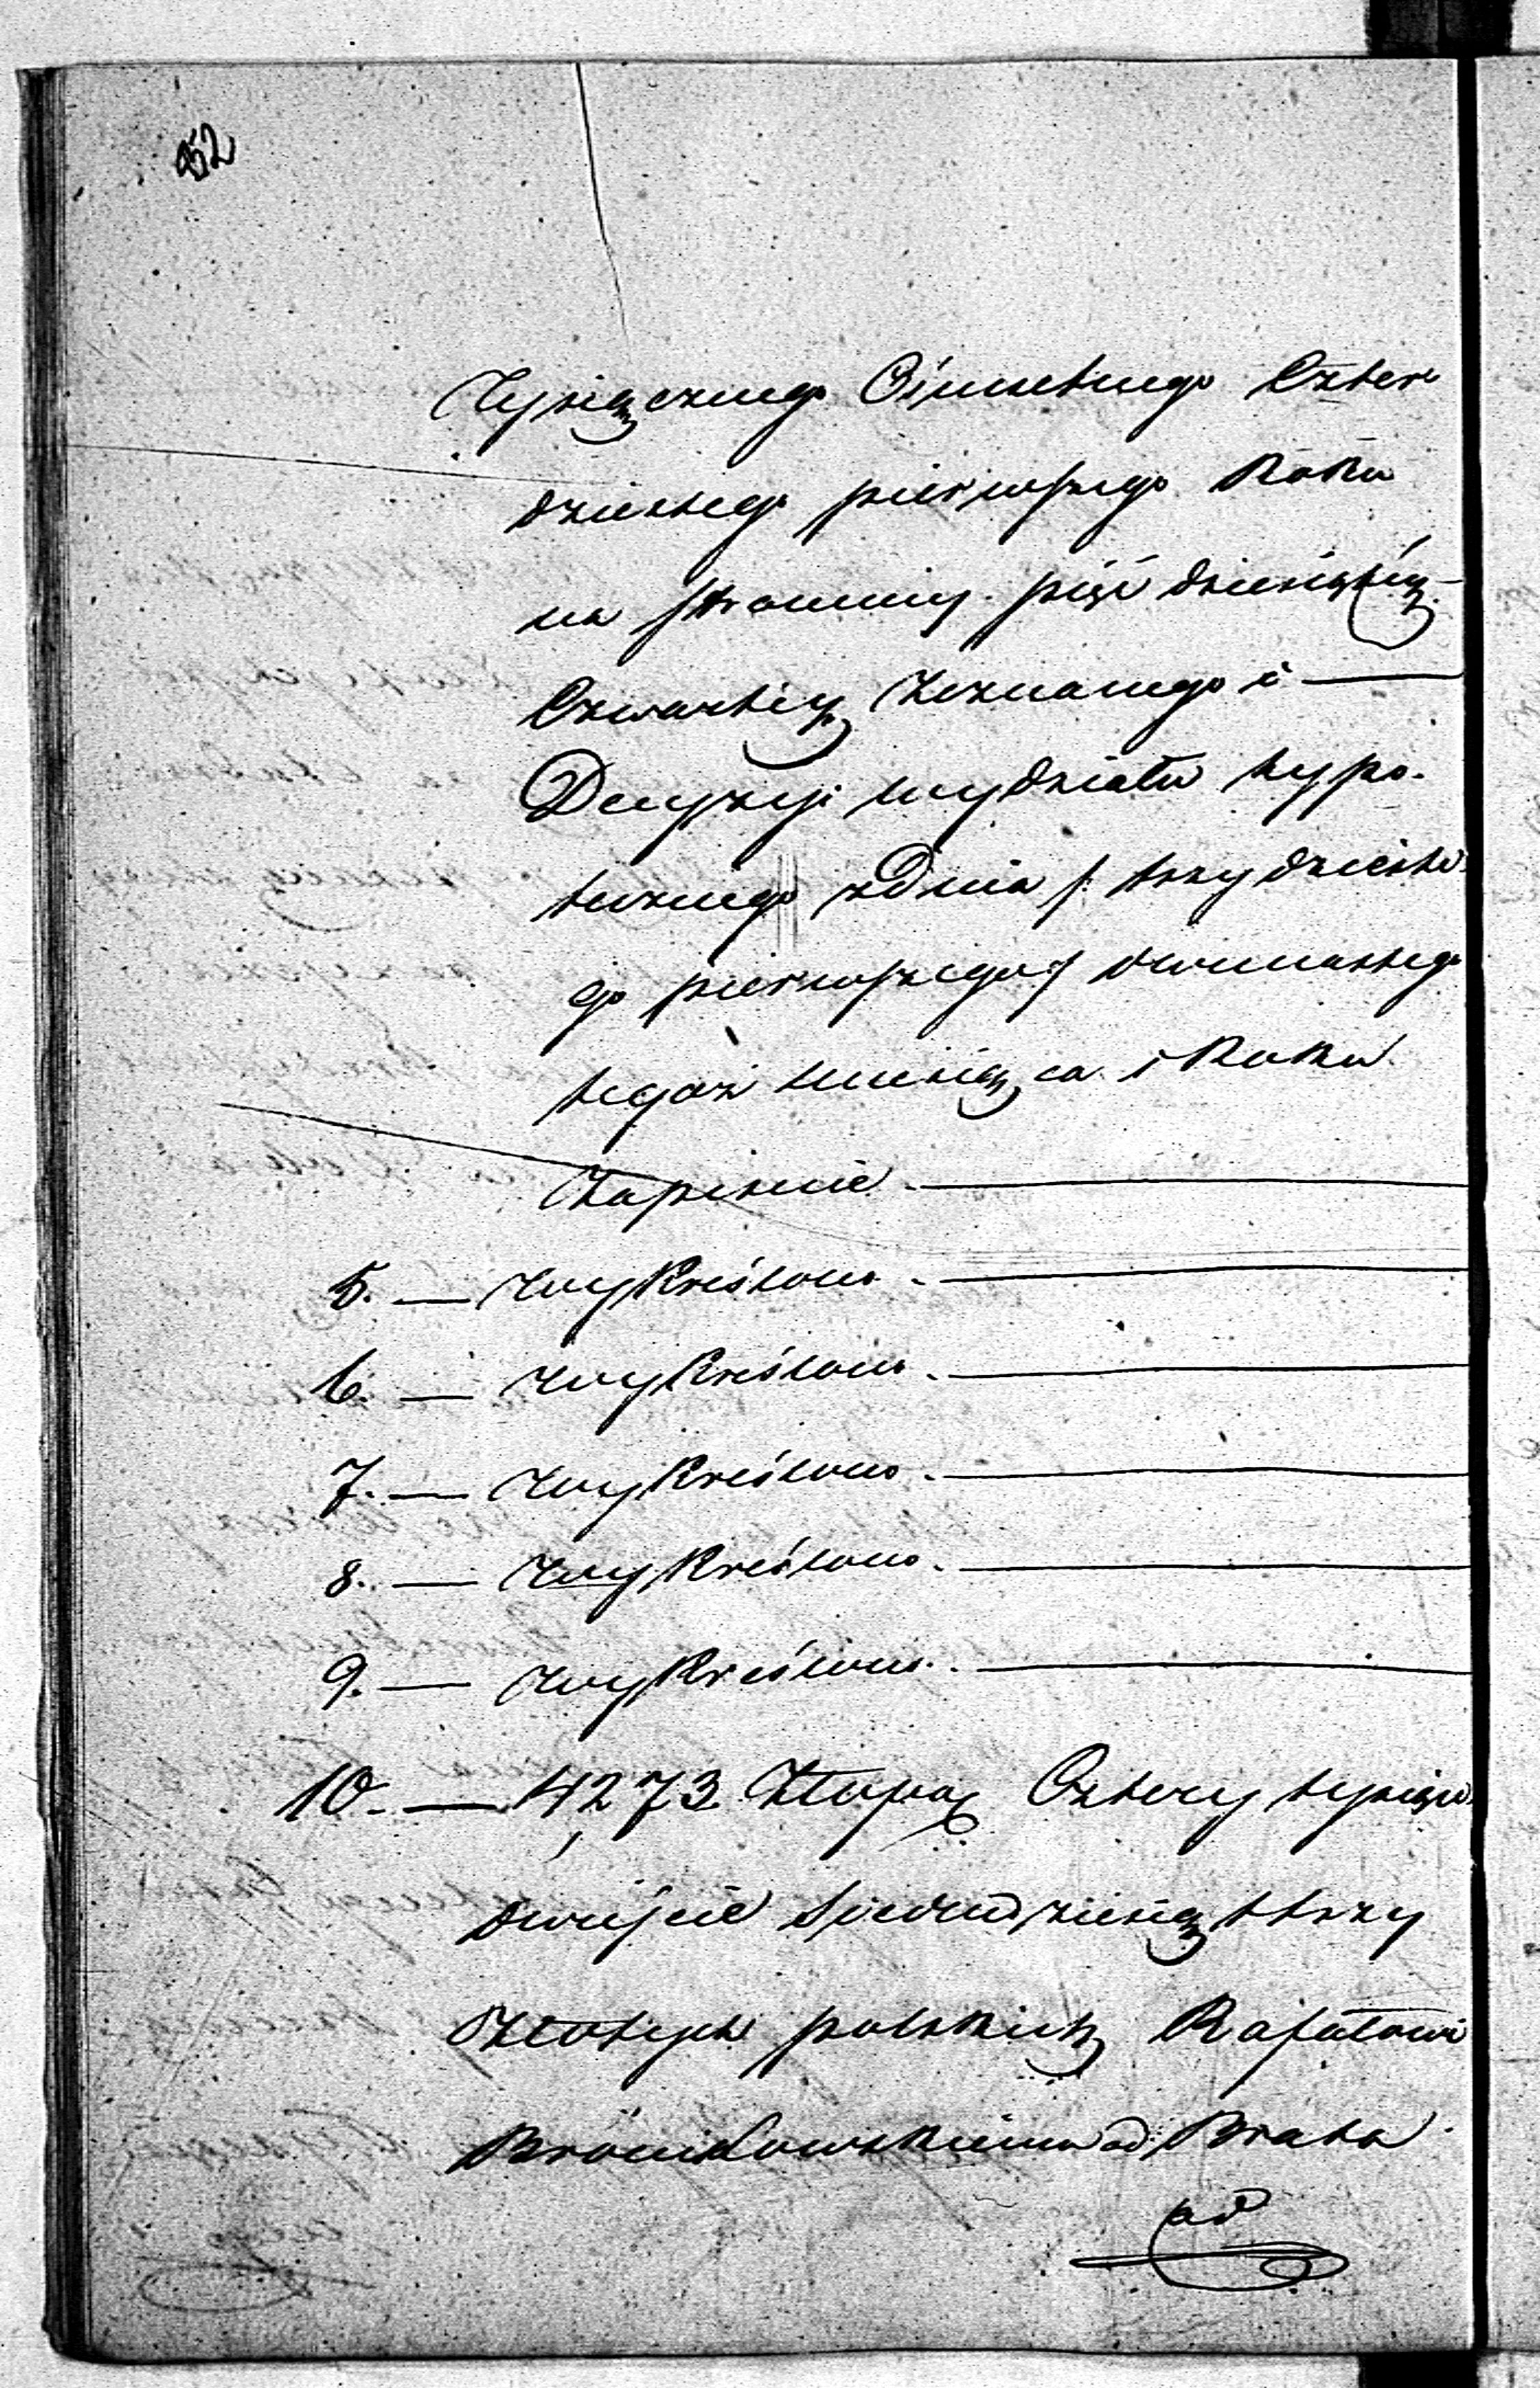 452
Tysiącznego Ósmsetnego Czter
dziestego pierwszego Roku
na stronnicy pięćdziesiątéy
Czwartéy Zeznanego i
Decyzyi wydziału hypo-
tecznego z Dnia / trzydzieste
go pierwszego / dwunastego
tegoż miesiąca i Roku
Zapisane
5. — Wykreślono
6. — Wykreślono
7. — Wykreślono
8. — Wykreślono
9. — Wykreślono
10. — 4,273. Złłpol Cztery tysiące
dwieście Siedmdziesiąt trzy
Złotych polskich Rafałowi
Bronikowskiemu od Brata
ad